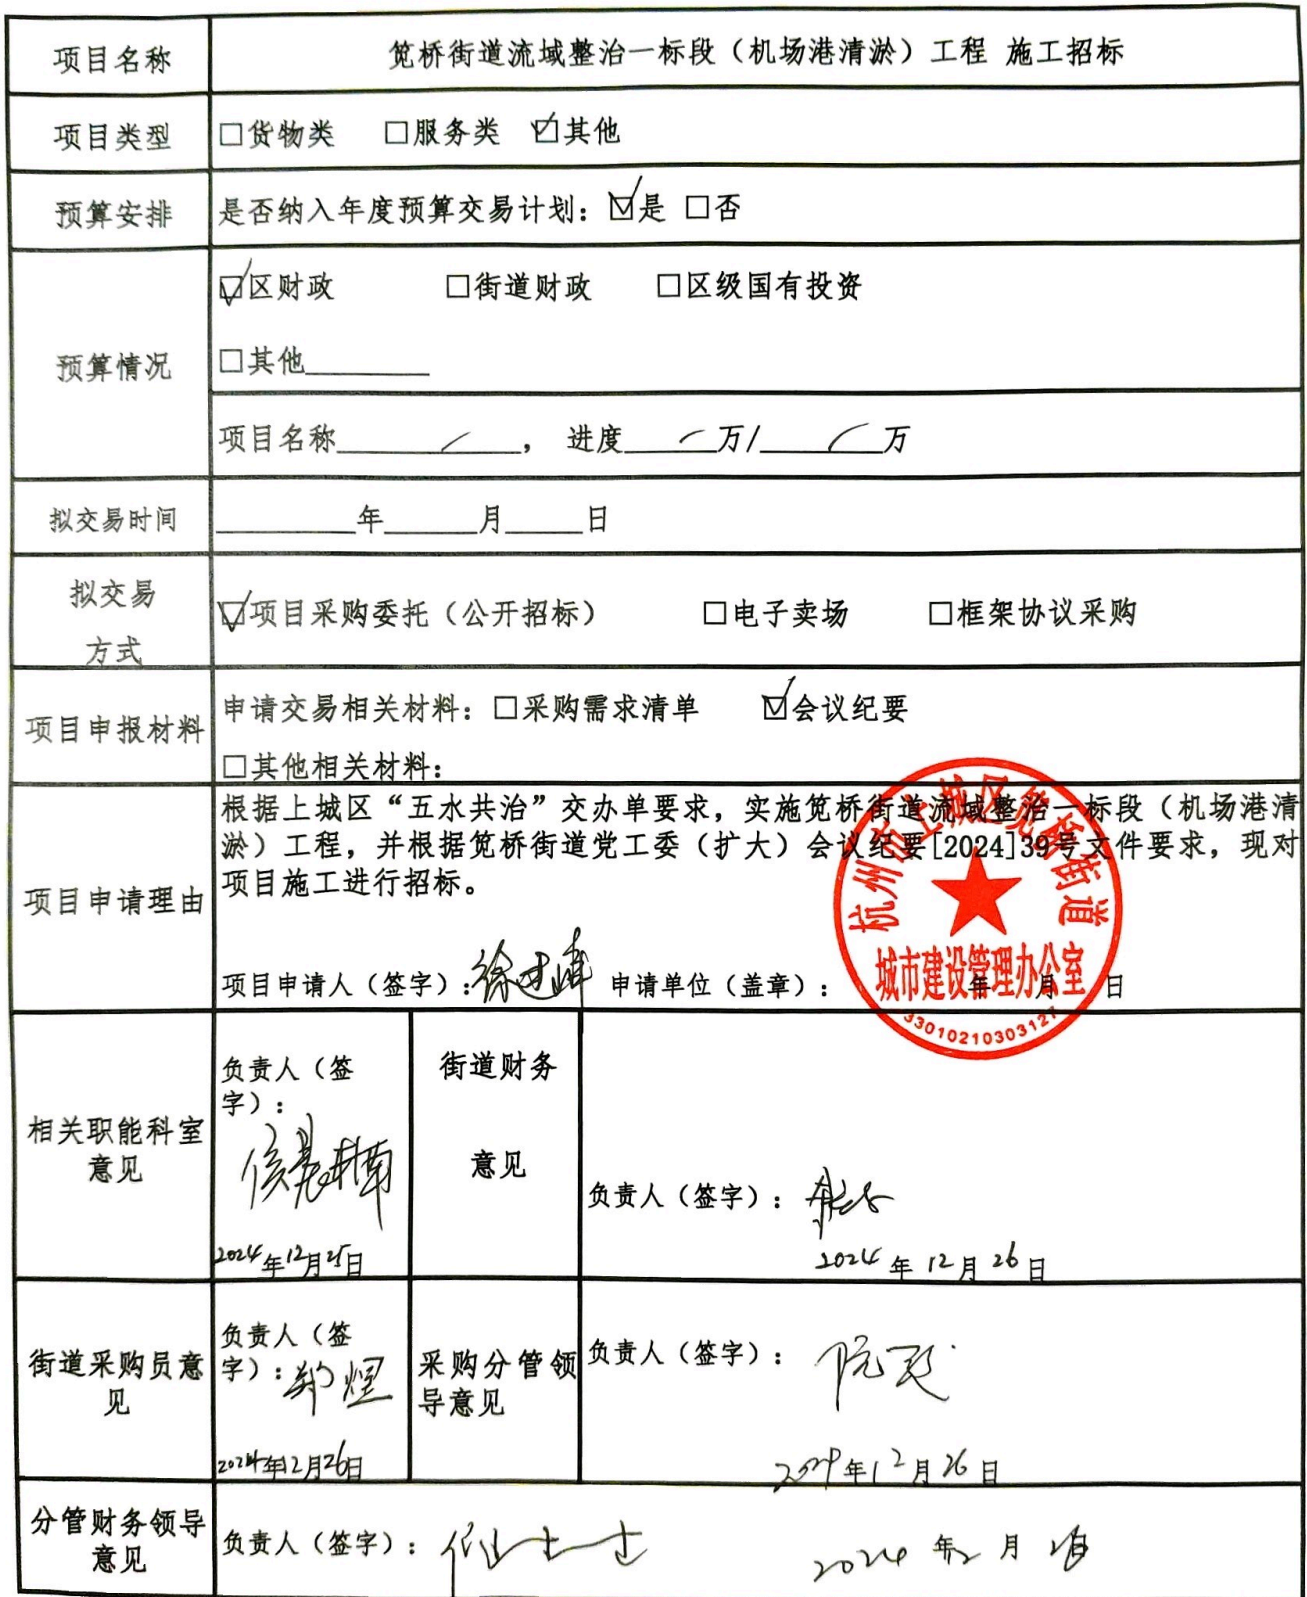 项目名称
笕桥街道流域整治一标段（机场港清淤）工程 施工招标
项目类型
□货物类 □服务类 ☑其他
预算安排
是否纳入年度预算交易计划：☑是 □否
预算情况
☑区财政 □街道财政 □区级国有投资
□其他________
项目名称______/______，进度____/____万/____/____万
拟交易时间
________年______月_____日
拟交易
方式
☑项目采购委托（公开招标） □电子卖场 □框架协议采购
项目申报材料
申请交易相关材料：□采购需求清单 ☑会议纪要
□其他相关材料：
项目申请理由
根据上城区“五水共治”交办单要求，实施笕桥街道流域整治一标段（机场港清
淤）工程，并根据笕桥街道党工委（扩大）会议纪要[2024]39号文件要求，现对
项目施工进行招标。
项目申请人（签字）： 申请单位（盖章）： 年 月 日
杭州市上城区笕桥街道
城市建设管理办公室
33010210303127
相关职能科室
意见
负责人（签
字）：
2024年12月25日
街道财务
意见
负责人（签字）：
2024年12月26日
街道采购员意
见
负责人（签
字）：郑煜
2024年12月26日
采购分管领
导意见
负责人（签字）：
2024年12月26日
分管财务领导
意见
负责人（签字）：
2024年12月